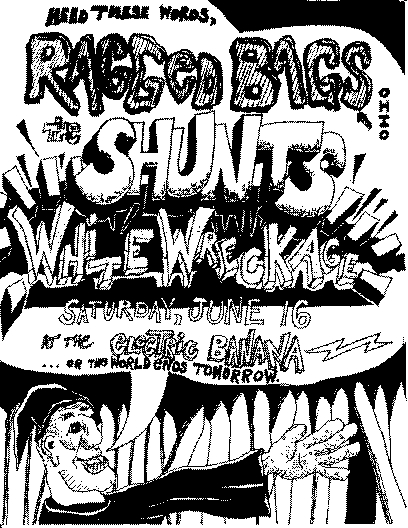 HEED THESE WORDS,
RAGGED BAGS
OHIO
THE SHUNTS
WHITE WRECKAGE
SATURDAY, JUNE 16
AT THE ELECTRIC BANANA
... OR THIS WORLD ENDS TOMORROW.